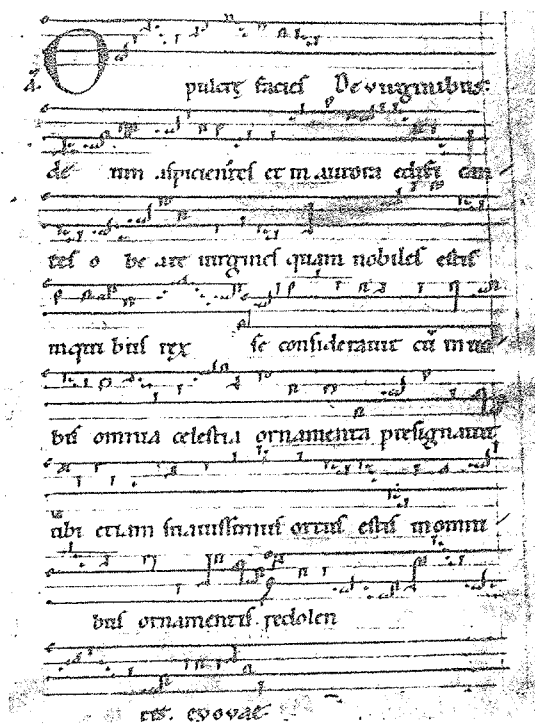 A. O pulcrę facies De virginibus.
deum aspicientes et in aurora edifican
tes o beate virgines quam nobiles estis
in quibus rex se consideravit cū in vo
bis omnia celestia ornamenta presignavit
ubi etiam suavissimus ortus estis in omni
bus ornamentis redolen
tes. evovae